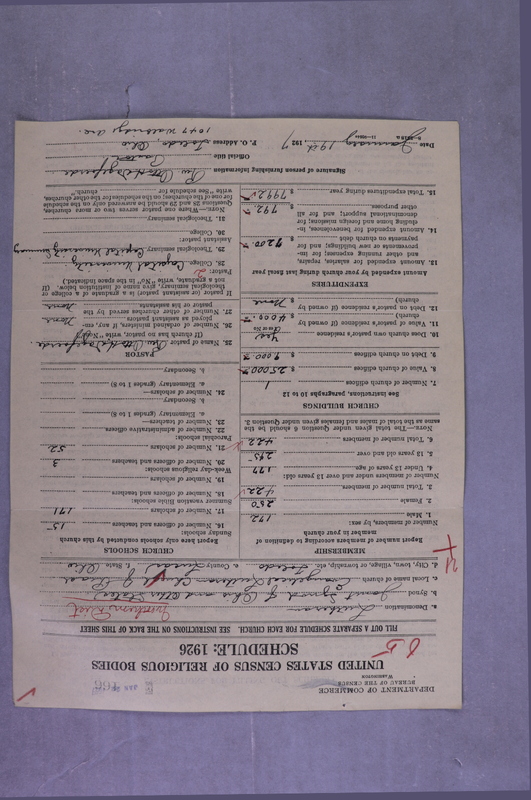 DEPARTMENT OF COMMERCE
BUREAU OF THE CENSUS
WASHINGTON
UNITED STATES CENSUS OF RELIGIOUS BODIES
SCHEDULE: 1926
FILL OUT A SEPARATE SCHEDULE FOR EACH CHURCH. SEE INSTRUCTIONS ON THE BACK OF THIS SHEET
a. Denomination Lutheran
b. Synod Joint Synod of Ohio and other States
c. Local name of church Evangelical Lutheran Church of
d. City, town, village, or township, etc. Toledo e. County Lucas f. State Ohio
MEMBERSHIP
Report number of members according to definition of member in your church
Number of members, by sex:
1. Male 172
2. Female 250
3. Total number of members 422
Number of members under and over 13 years old:
4. Under 13 years of age 177
5. 13 years old and over 245
6. Total number of members 422
NOTE.—The total given under Question 6 should be the same as the total of males and females given under Question 3.
CHURCH BUILDINGS
See instructions, paragraphs 10 to 12
7. Number of church edifices 1
8. Value of church edifices $ 25000
9. Debt on church edifices $ 9000
10. Does church own pastor's residence yes
11. Value of pastor's residence (if owned by church) $
12. Debt on pastor's residence (if owned by church) $ None
EXPENDITURES
Amount expended by your church during last fiscal year
13. Amount expended for salaries, repairs, and other running expenses; for improvements or new buildings; and for payments on church debt $ 7200
14. Amount expended for benevolences, including home and foreign missions; for denominational support; and for all other purposes $ 792
15. Total expenditures during year $ 7992
CHURCH SCHOOLS
Report here only schools conducted by this church
Sunday schools:
16. Number of officers and teachers 15
17. Number of scholars 171
Summer vacation Bible schools:
18. Number of officers and teachers
19. Number of scholars
Week-day religious schools:
20. Number of officers and teachers 3
21. Number of scholars 52
Parochial schools:
22. Number of administrative officers
23. Number of teachers—
a. Elementary (grades 1 to 8)
b. Secondary
24. Number of scholars—
a. Elementary (grades 1 to 8)
b. Secondary
PASTOR
25. Name of pastor Rev. Otto
(If church has no pastor, write "No")
26. Number of ordained ministers, if any, employed as assistant pastors None
27. Number of other churches served by the pastor or his assistants None
If pastor or assistant pastor is a graduate of a college or theological seminary, give name of institution below. (If not a graduate, write "No" in the space indicated.)
Pastor:
28. College Capital University
29. Theological seminary Capital University Seminary
Assistant pastor:
30. College
31. Theological seminary
NOTE.—Where one pastor serves two or more churches, Questions 28 and 29 should be answered only on the schedule for one of the churches; on the schedules for the other churches, write "See schedule for church."
Signature of person furnishing information Rev. Otto
Official title Pastor
P. O. Address Toledo, Ohio
1047 Walbridge Ave.
Date January 19th, 1927